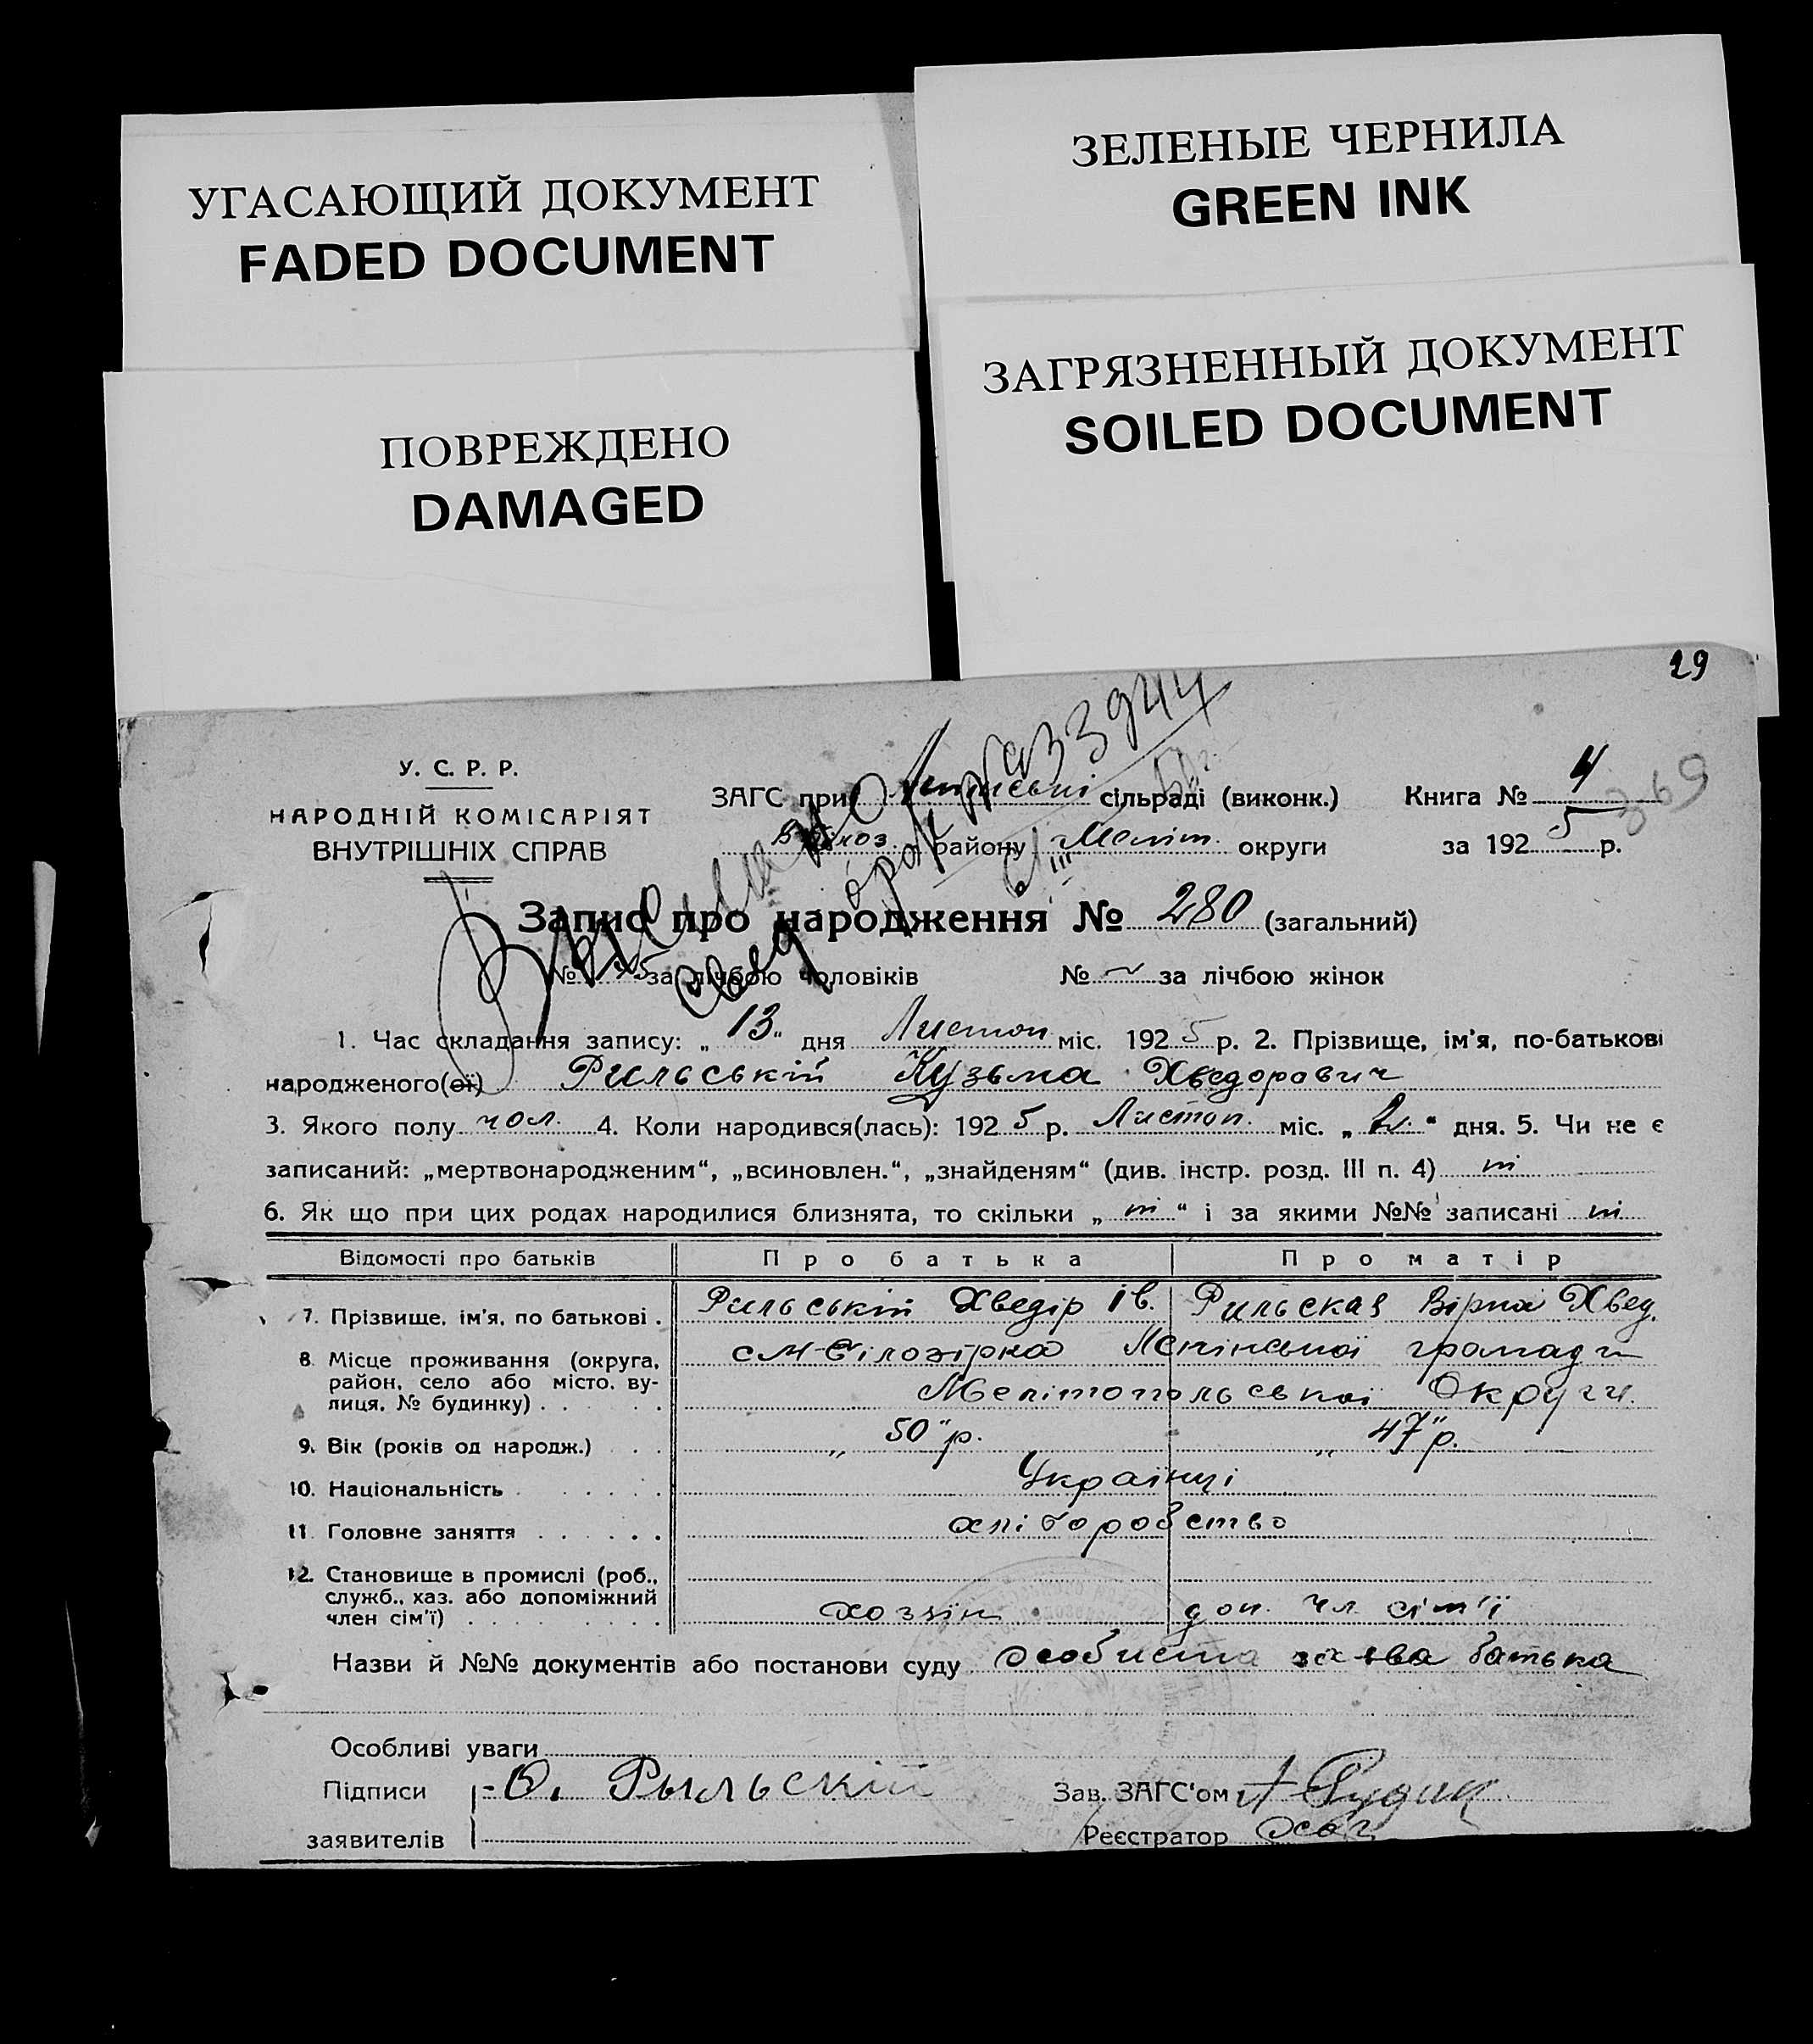 УГАСАЮЩИЙ ДОКУМЕНТ
FADED DOCUMENT
ЗЕЛЕНЫЕ ЧЕРНИЛА
GREEN INK
ПОВРЕЖДЕНО
DAMAGED
ЗАГРЯЗНЕННЫЙ ДОКУМЕНТ
SOILED DOCUMENT
29
369
У. С. Р. Р.
НАРОДНІЙ КОМІСАРІЯТ
ВНУТРІШНІХ СПРАВ
ЗАГС при сільраді (виконк.) Книга № 4
району Меліт. округи за 1925 р.
Запис про народження № 280 (загальний)
№ за лічбою чоловіків № за лічбою жінок
1. Час складання запису: „13“ дня Листоп міс. 1925 р. 2. Прізвище, ім'я, по-батькові
народженого(ої) Рильській Кузьма Хведорович
3. Якого полу чол. 4. Коли народився(лась): 1925 р. Листоп. міс. „ “ дня. 5. Чи не є
записаний: „мертвонародженим“, „всиновлен.“, „знайденям“ (див. інстр. розд. III п. 4)
6. Як що при цих родах народилися близнята, то скільки „ “ і за якими №№ записані
Відомості про батьків Про батька Про матір
7. Прізвище, ім'я, по батькові . Рильській Хведір Ів. Рильская Вірка Хвед.
8. Місце проживання (округа, район, село або місто, вулиця, № будинку) . . . . . с м-Білозірка Ленінської громади
Мелітопольської Округи.
9. Вік (років од народж.) . . . „ 50 "р. „ 47 "р.
10. Національність . . . . . . Українці
11. Головне заняття . . . . . хліборобство
12. Становище в промислі (роб.,
служб., хаз. або допоміжний
член сім'ї) . . . . . . . . хозяін доп. чл. сім'ї
Назви й №№ документів або постанови суду Особиста заява батька
Особливі уваги
Підписи Рыльскій Зав. ЗАГС'ом
заявителів Реєстратор